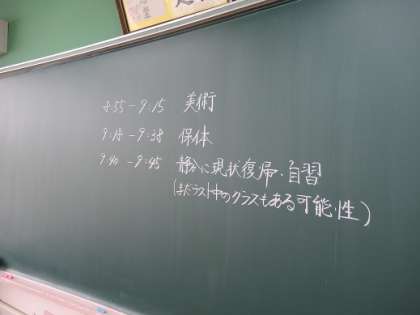 8:55-9:15 美術
9:18-9:38 保体
9:40-9:45 静かに現状復帰・自習
(まだテスト中のクラスもある可能性)